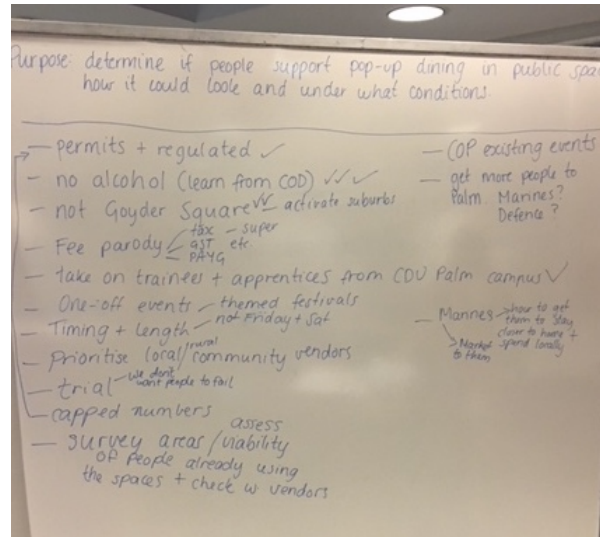 Purpose: determine if people support pop-up dining in public spa
how it could look and under what conditions.
— permits + regulated ✓
— no alcohol (learn from COD) ✓✓ ✓
— not Goyder Square ✓✓ — activate suburbs
— Fee parody
tax — super
GST etc.
PAYG
— take on trainees + apprentices from CDU Palm campus ✓
— One-off events — themed festivals
— Timing + Length — not Friday + Sat
— Prioritise local/rural/community vendors
— trial — we don't
want people to fail
— capped numbers
— survey areas / assess viability
of people already using
the spaces + check w vendors
— COP existing events
— get more people to
Palm. Mannes?
Defence?
— Mannes — how to get
them to stay
closer to home +
spend locally
> Market
to them